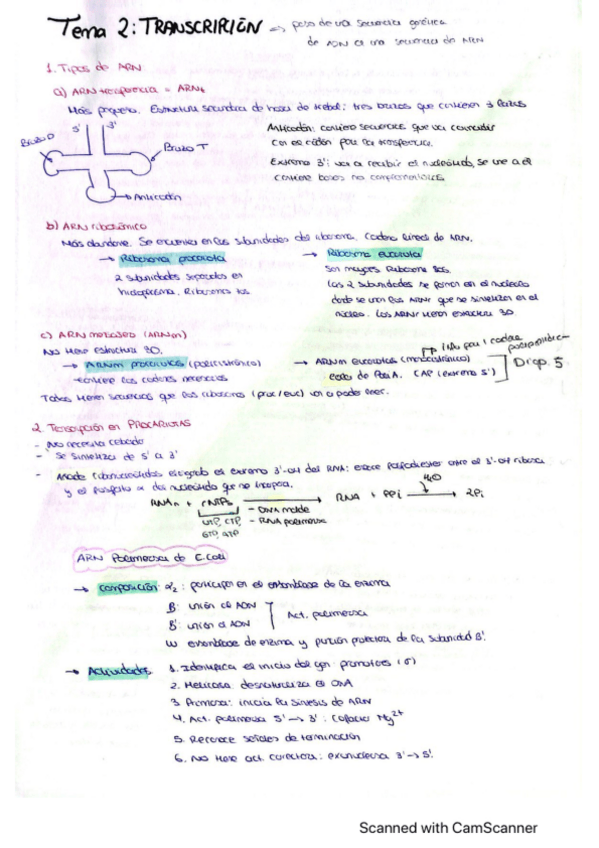 Tema 2: TRANSCRIPCIÓN → paso de una secuencia genética
de ADN a una secuencia de ARN
1. Tipos de ARN
a) ARN transferencia = ARNt
Más pequeño. Estructura secundaria de hoja de trebol: tres brazos que contienen
5' 3'
Brazo D
Brazo T
Anticodón
Anticodón: contiene secuencia que va coincidir
con el codón para la transferencia.
Extremo 3': va a recibir el nucleósido, se une a él
contiene bases no complementarias
b) ARN ribosómico
Más abundante. Se encuentra en las subunidades del ribosoma. Cadena lineal de ARN.
→ Ribosoma procariota
2 subunidades separados en
Ribosomas
→ Ribosoma eucariota
Son mayores Ribosoma
Las 2 subunidades se forman en el nucleolo
donde se unen los ARNr que se sintetizan en el
núcleo. Los ARNr tienen estructura 3D
c) ARN mensajero (ARNm)
No tiene estructura 3D.
→ ARNm procariotas (policistrónico)
contiene las codones necesarios
→ ARNm eucariotas (monocistrónico)
cola de Poli A. CAP (extremo 5')
1 ARNm para 1 cadena polipeptídica
Diap. 5
Todos tienen secuencias que los ribosomas (proc/euc) van a poder leer.
2. Transcripción en PROCARIOTAS
- No necesita cebado
- Se sintetiza de 5' a 3'
- Añade ribonucleótidos al extremo 3'-OH del RNA: enlace fosfodiester entre el 3'-OH ribosa
y el fosfato α del nucleótido que se incorpora.
RNAn + rNTPs → RNA + PPi → 2Pi
H2O
UTP, CTP,
GTP, ATP
- DNA molde
- RNA polimerasa
ARN Polimerasa de E. coli
→ Composición α2: participan en el ensamblaje de la enzima
β: unión al ADN
β': unión al ADN
Act. polimerasa
ω ensamblaje de enzima y función protectora de la subunidad β'.
→ Actividades 1. Identifica el inicio del gen: promotores (σ)
2. Helicasa: desnaturaliza el DNA
3. Primasa: inicia la síntesis de ARN
4. Act. polimerasa 5' → 3': cofactor Mg2+
5. Reconoce señales de terminación
6. No tiene act. correctora: exonucleasa 3' → 5'.
Scanned with CamScanner